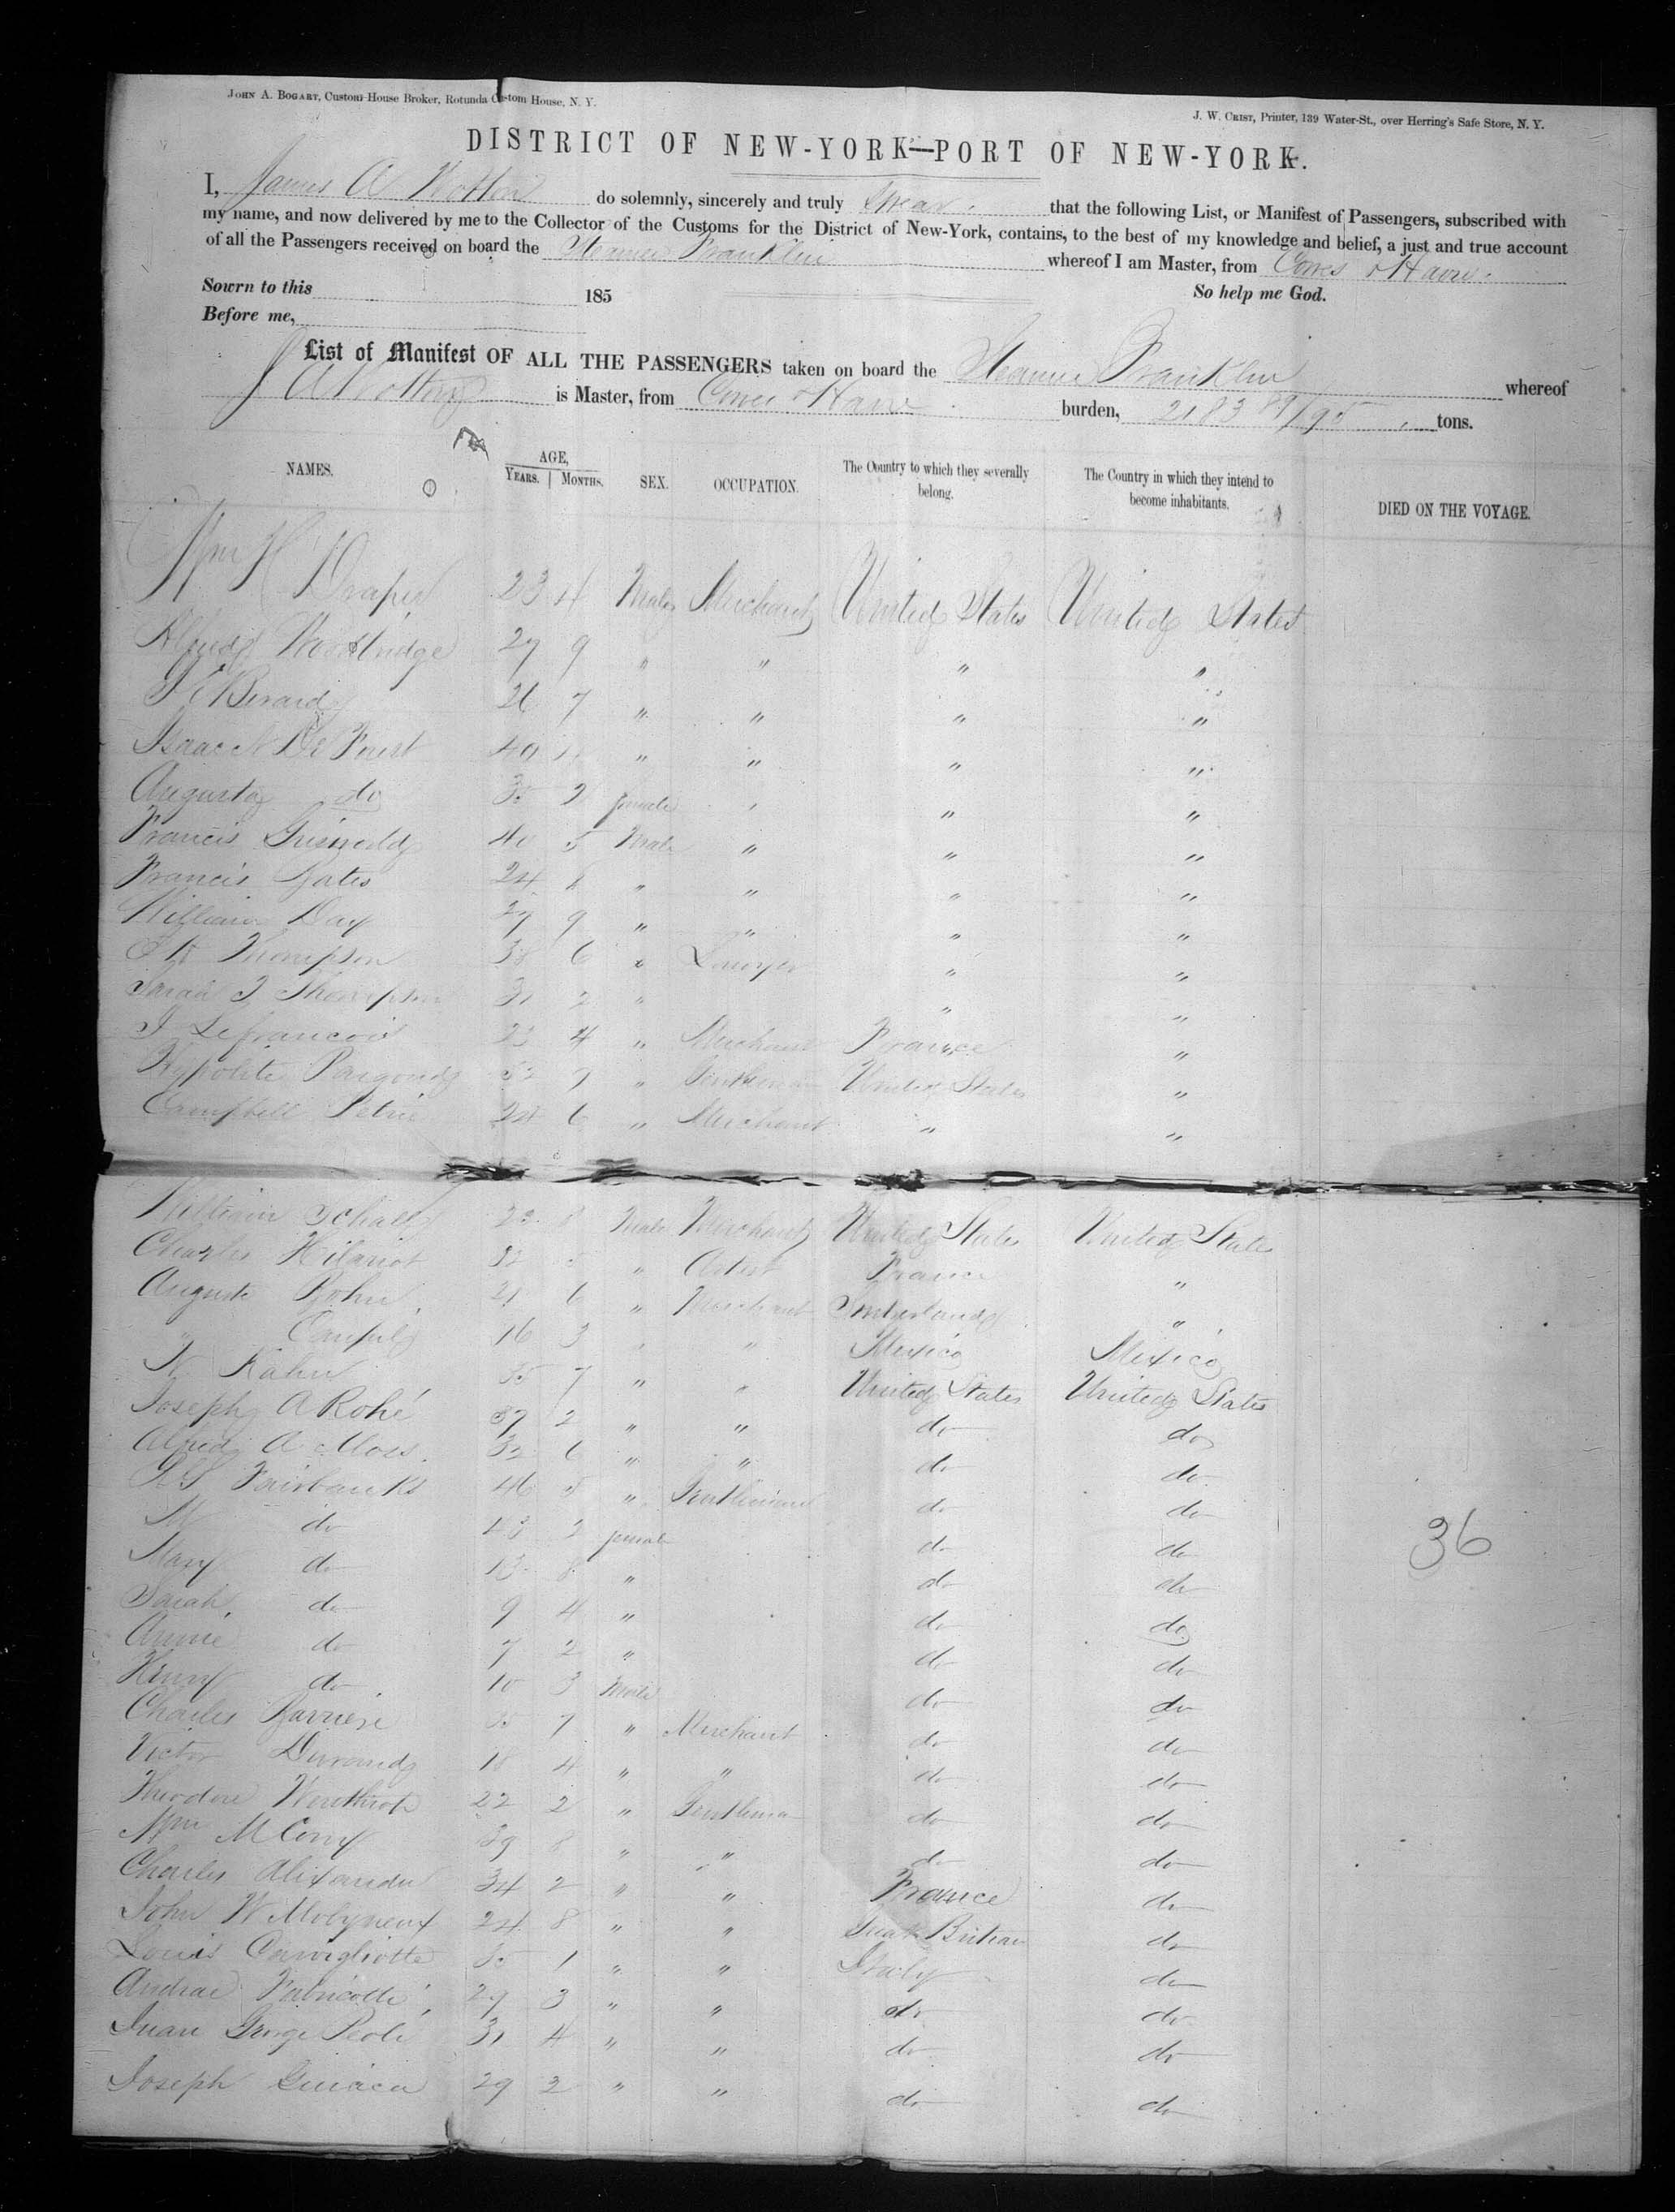 JOHN A. BOGART, Custom House Broker, Rotunda Custom House, N. Y.
J. W. CRIST, Printer, 139 Water-St., over Herring's Safe Store, N. Y.
DISTRICT OF NEW-YORK—PORT OF NEW-YORK.
I, James A Wotton do solemnly, sincerely and truly Swear that the following List, or Manifest of Passengers, subscribed with
my name, and now delivered by me to the Collector of the Customs for the District of New-York, contains, to the best of my knowledge and belief, a just and true account
of all the Passengers received on board the Steamer Franklin whereof I am Master, from Cowes & Havre.
Sowrn to this 185 So help me God.
Before me,
List of Manifest OF ALL THE PASSENGERS taken on board the Steamer Franklin whereof
J A Wotton is Master, from Cowes & Havre burden, 2183 89/95 tons.
NAMES. AGE, YEARS. MONTHS. SEX. OCCUPATION. The Country to which they severally belong. The Country in which they intend to become inhabitants. DIED ON THE VOYAGE.
Wm H Draper 23 4 Male Merchant United States United States
Alfred Woodbridge 27 9 " " " "
Berard 26 7 " " " "
Isaac N De Forest 40 " " " "
Augusta do 35 2 female " "
Francis Griswold 40 5 Male " " "
Francis Yates 24 " " " "
William Day 27 9 " " " "
Thompson 38 6 " Lawyer " "
Sarah J Thompson 31 2 " " "
J Lefrancois 23 4 " Merchant France "
Hypolite 52 7 " Gentleman United States "
Campbell Petrie 24 6 " Merchant " "
William Schall 23 8 Male Merchant United States United States
Charles Hilariot 32 " Artist France "
Auguste 21 6 " Merchant Switzerland "
" 16 3 " " Mexico Mexico
N Kahn 35 7 " " United States United States
Joseph A Rohé 37 2 " " do do
Alfred A Moss 32 6 " " do do
Fairbanks 46 5 " Gentleman do do
M do 43 2 female do do
Mary do 13 8 " do do
Sarah do 9 4 " do do
Annie do 7 2 " do do
Henry do 10 3 Male do do
Charles 35 7 " Merchant do do
Victor Durand 18 4 " " do do
Theodore Winthrop 22 2 " Gentleman do do
Wm M Corry 39 8 " " do do
Charles Alexander 34 2 " " France do
John W Molyneux 24 8 " " Great Britain do
Louis 35 1 " " Italy do
Andrae Fabricotti 27 3 " " do do
Juan George Peoli 31 4 " " do do
Joseph 29 2 " " do do
36